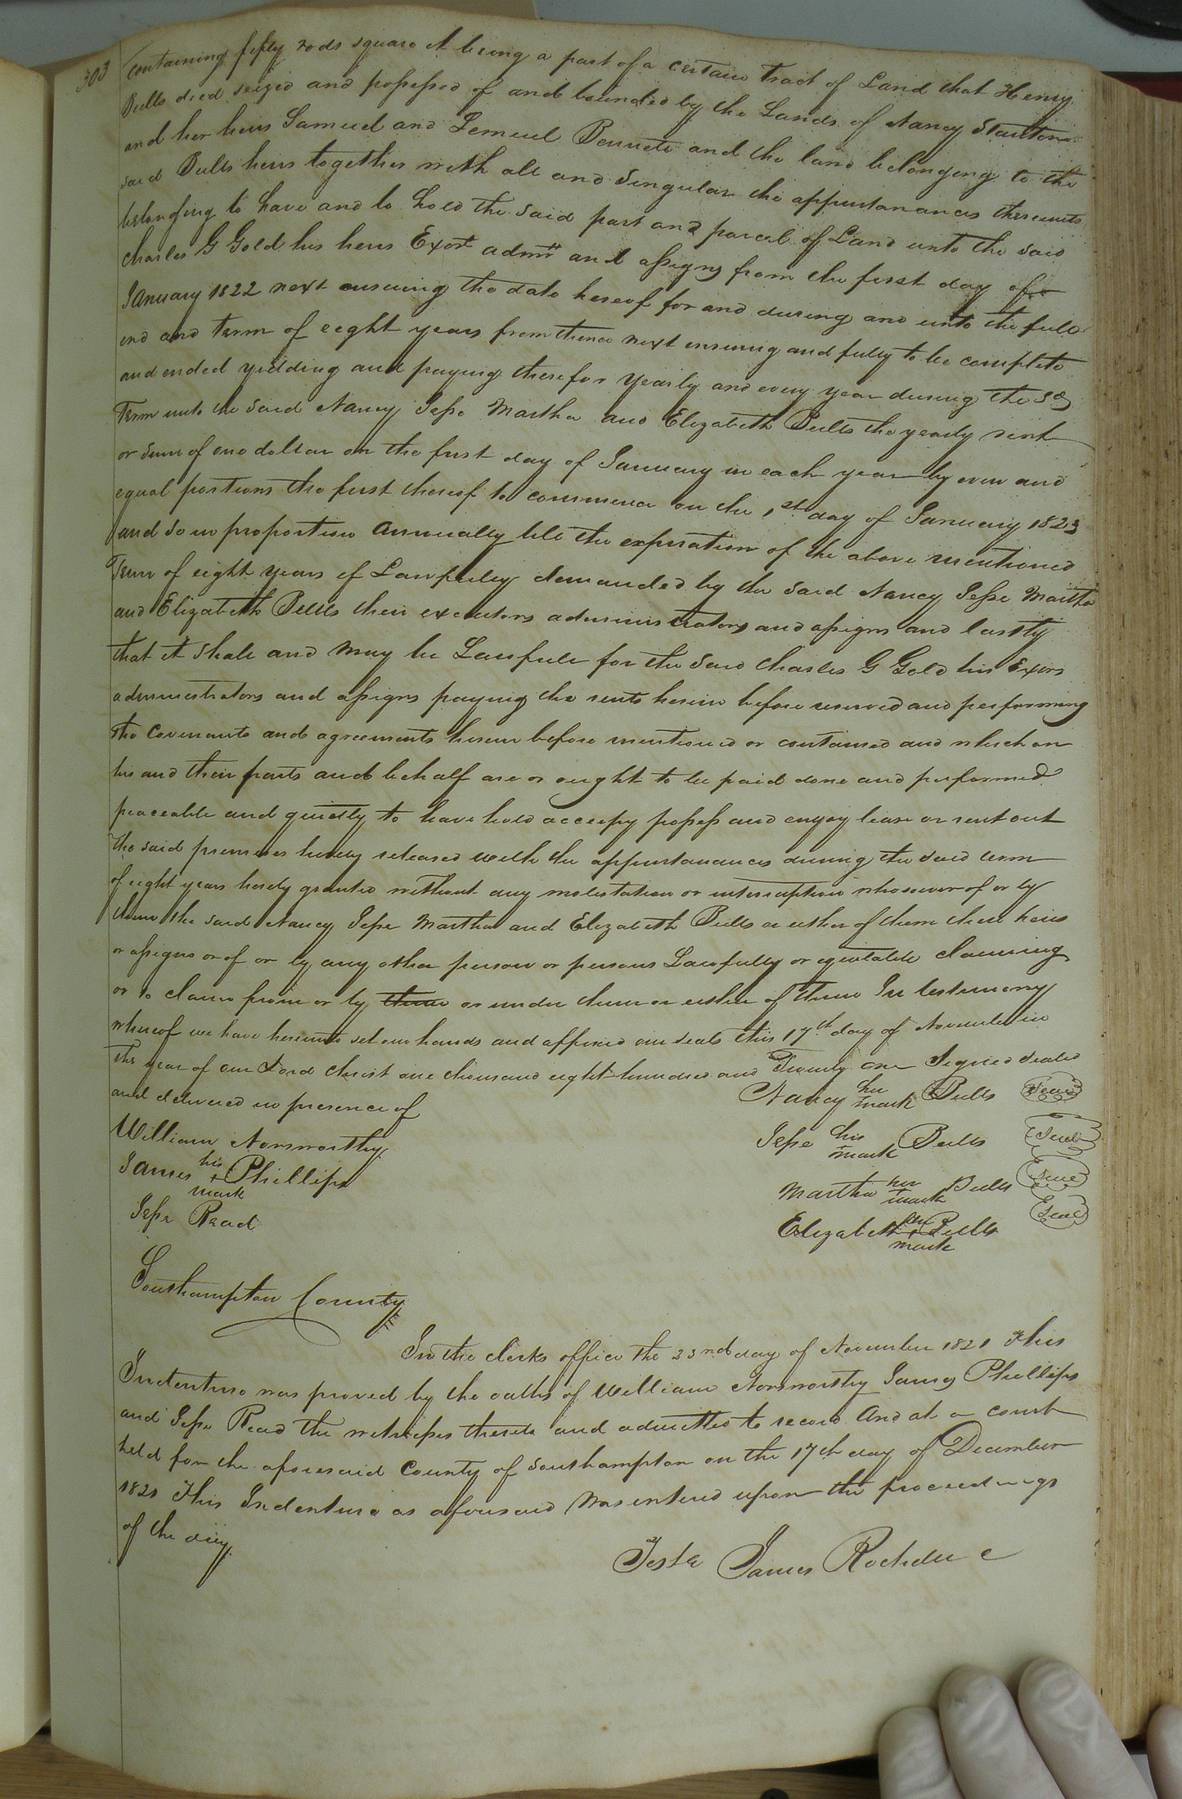 303
containing fifty rods square it being a part of a certain tract of Land that Henry
Bells died seized and possessed of and bounded by the Lands of Nancy Stanton
and her heirs Samuel and Lemuel Bennett and the land belonging to the
said Bells heirs together with all and Singular the appurtanances thereunto
belonging to have and to hold the said part and parcel of Land unto the said
Charles G Gold his heirs Exors admrs and assigns from the first day of
January 1822 next ensuing the date hereof for and during and unto the full
end and Term of eight years from thence next ensuing and fully to be complete
and ended yielding and paying therefor yearly and every year during the sd
Term unto the said Nancy Jesse Martha and Elizabeth Bells the yearly rent
or sum of one dollar on the first day of January in each year by even and
equal portions the first thereof to commence on the 1st day of January 1823
and so in proportion annually till the expiration of the above mentioned
Term of eight years if Lawfully demanded by the said Nancy Jesse Martha
and Elizabeth Bells their executors administrators and assigns and lastly
that it shall and may be Lawfull for the said Charles G Gold his Exors
administrators and assigns paying the rents herein before reserved and performing
the Covenants and agreements herein before mentioned or contained and which on
his and their parts and behalf are or ought to be paid done and performed
peaceable and quietly to have hold occupy possess and enjoy lease or rent out
the said premises hereby released with the appurtanances during the said term
of eight years hereby granted without any molestation or interruption whosoever of or by
them the said Nancy Jesse Martha and Elizabeth Bells or either of them their heirs
or assigns or of or by any other person or persons Lawfully or equitable claiming
or to claim from or by them or under them or either of them In testimony
whereof we have hereunto set our hands and affixed our seals this 17th day of November in
the year of our Lord Christ one thousand eight hundred and Twenty one Signed sealed
and delivered in presence of
Nancy her mark Bells Seal
William Norsworthy
Jesse his mark Bells Seal
James his + mark Phillips
Martha her mark Bells Seal
Jesse Read
Elizabeth her + mark Bells Seal
Southampton County
In the clerks office the 23nd day of November 1821 This
Indenture was proved by the oaths of William Norsworthy James Phillips
and Jesse Read the witnesses thereto and admitted to record And at a court
held for the aforesaid County of Southampton on the 17th day of December
1821 This Indenture as aforesaid was entered upon the proceedings
of the day
Teste James Rochelle c